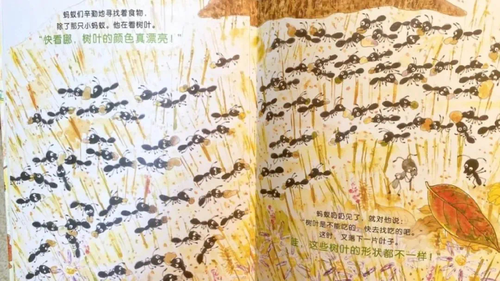 蚂蚁们辛勤地寻找着食物,
除了那只小蚂蚁。他在看树叶。
“快看哪,树叶的颜色真漂亮!”
蚂蚁奶奶见了,就对他说:
“树叶是不能吃的,快去找吃的吧。
这时,又落下一片叶子。
哇,这些树叶的形状都不一样!